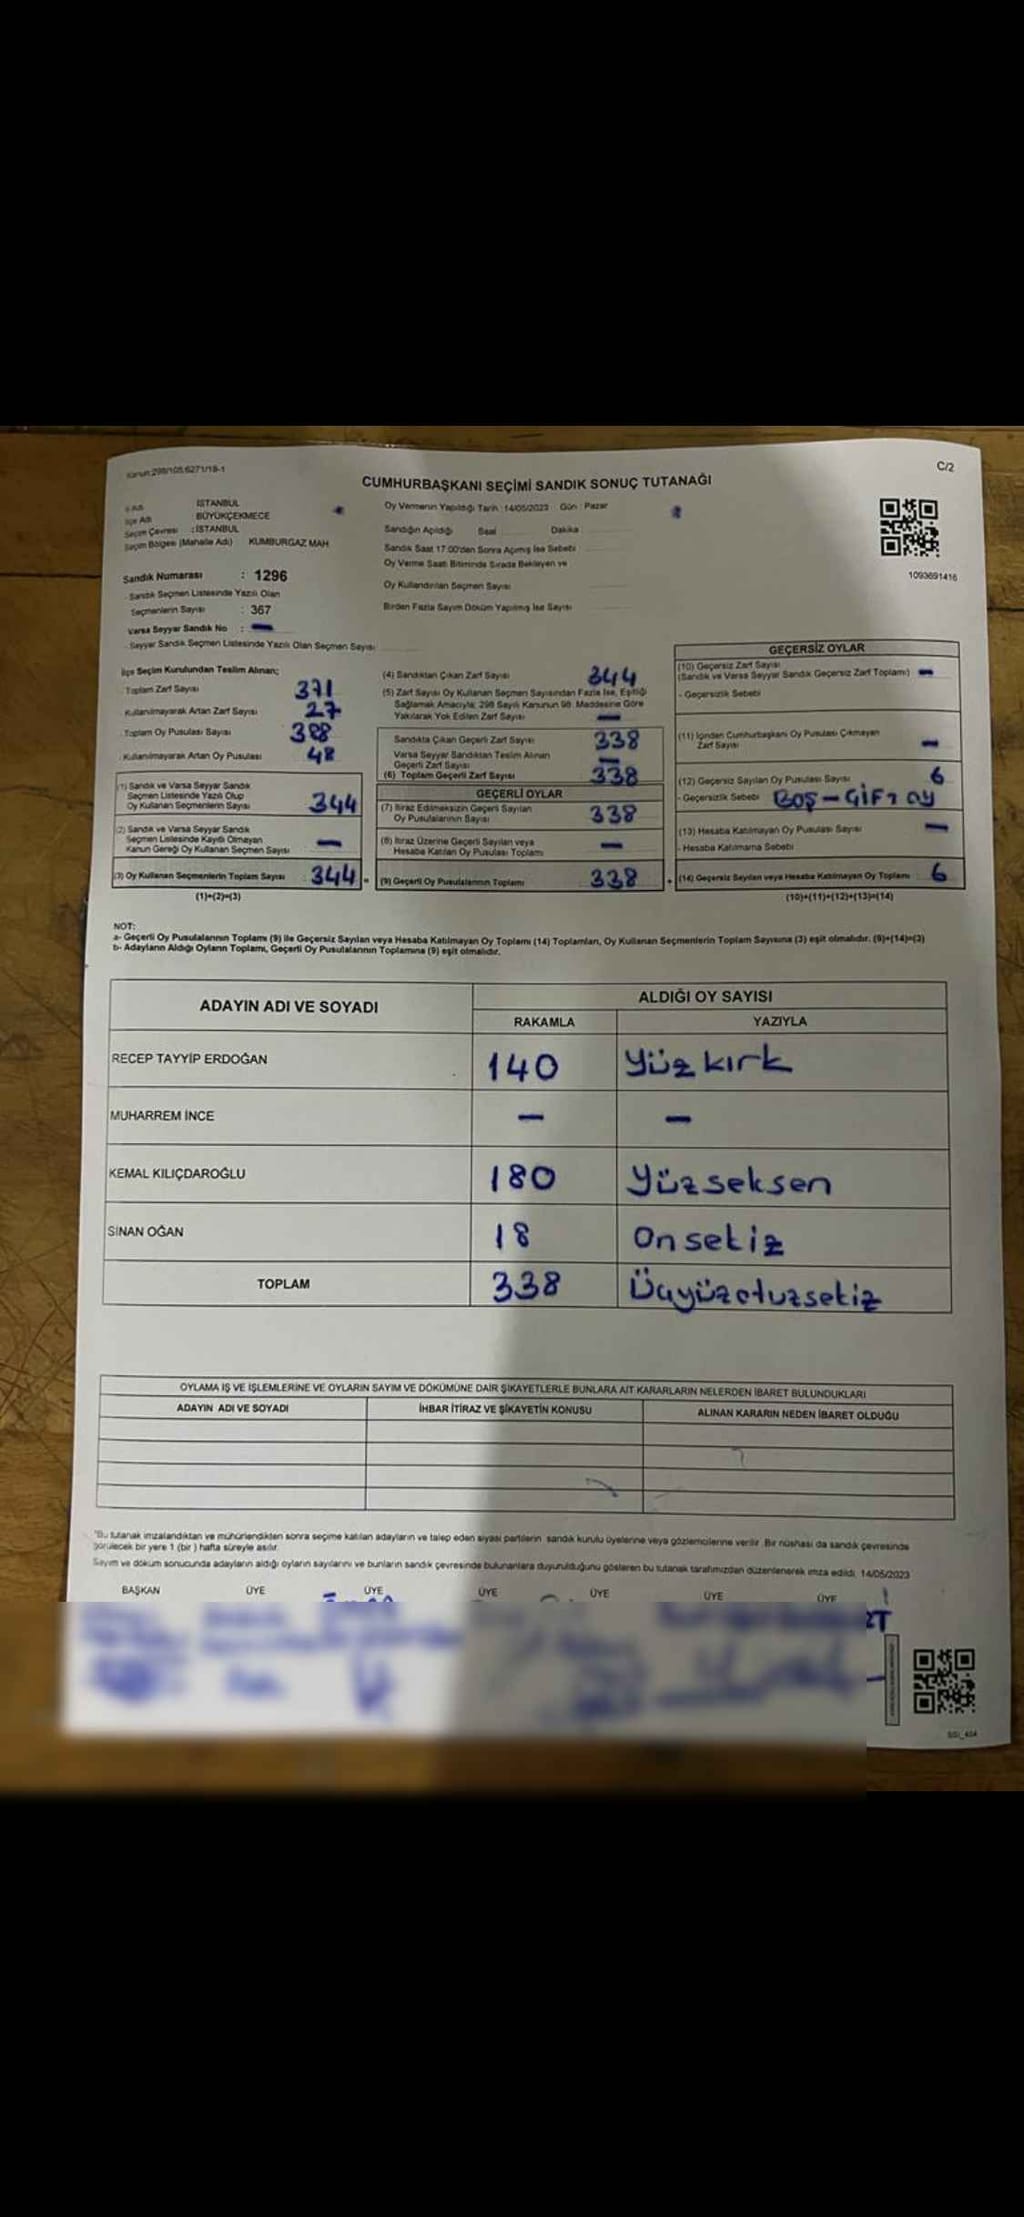 Kanun:298/105,6271/18-1
C/2
CUMHURBAŞKANI SEÇİMİ SANDIK SONUÇ TUTANAĞI
İl Adı İSTANBUL
İlçe Adı BÜYÜKÇEKMECE
Seçim Çevresi : İSTANBUL
Seçim Bölgesi (Mahalle Adı) KUMBURGAZ MAH
Oy Vermenin Yapıldığı Tarih : 14/05/2023 Gün : Pazar
Sandığın Açıldığı Saat Dakika
Sandık Saat 17:00'den Sonra Açılmış İse Sebebi
Oy Verme Saati Bitiminde Sırada Bekleyen ve
Oy Kullandırılan Seçmen Sayısı
Birden Fazla Sayım Döküm Yapılmış İse Sayısı
1093691416
Sandık Numarası : 1296
- Sandık Seçmen Listesinde Yazılı Olan
Seçmenlerin Sayısı : 367
Varsa Seyyar Sandık No : —
- Seyyar Sandık Seçmen Listesinde Yazılı Olan Seçmen Sayısı
İlçe Seçim Kurulundan Teslim Alınan;
- Toplam Zarf Sayısı 371
- Kullanılmayarak Artan Zarf Sayısı 27
- Toplam Oy Pusulası Sayısı
- Kullanılmayarak Artan Oy Pusulası 48
(1) Sandık ve Varsa Seyyar Sandık
Seçmen Listesinde Yazılı Olup
Oy Kullanan Seçmenlerin Sayısı 344
(2) Sandık ve Varsa Seyyar Sandık
Seçmen Listesinde Kayıtlı Olmayan
Kanun Gereği Oy Kullanan Seçmen Sayısı —
(3) Oy Kullanan Seçmenlerin Toplam Sayısı 344 =
(1)+(2)=(3)
(4) Sandıktan Çıkan Zarf Sayısı 344
(5) Zarf Sayısı Oy Kullanan Seçmen Sayısından Fazla İse, Eşitliği
Sağlamak Amacıyla; 298 Sayılı Kanunun 98. Maddesine Göre
Yakılarak Yok Edilen Zarf Sayısı —
Sandıkta Çıkan Geçerli Zarf Sayısı 338
Varsa Seyyar Sandıktan Teslim Alınan
Geçerli Zarf Sayısı —
(6) Toplam Geçerli Zarf Sayısı 338
GEÇERLİ OYLAR
(7) İtiraz Edilmeksizin Geçerli Sayılan
Oy Pusulalarının Sayısı 338
(8) İtiraz Üzerine Geçerli Sayılan veya
Hesaba Katılan Oy Pusulası Toplamı —
(9) Geçerli Oy Pusulalarının Toplamı 338 +
GEÇERSİZ OYLAR
(10) Geçersiz Zarf Sayısı
(Sandık ve Varsa Seyyar Sandık Geçersiz Zarf Toplamı) —
- Geçersizlik Sebebi
(11) İçinden Cumhurbaşkanı Oy Pusulası Çıkmayan
Zarf Sayısı —
(12) Geçersiz Sayılan Oy Pusulası Sayısı 6
- Geçersizlik Sebebi BOŞ – ÇİFT OY
(13) Hesaba Katılmayan Oy Pusulası Sayısı —
- Hesaba Katılmama Sebebi
(14) Geçersiz Sayılan veya Hesaba Katılmayan Oy Toplamı 6
(10)+(11)+(12)+(13)=(14)
NOT:
a- Geçerli Oy Pusulalarının Toplamı (9) ile Geçersiz Sayılan veya Hesaba Katılmayan Oy Toplamı (14) Toplamları, Oy Kullanan Seçmenlerin Toplam Sayısına (3) eşit olmalıdır. (9)+(14)=(3)
b- Adayların Aldığı Oyların Toplamı, Geçerli Oy Pusulalarının Toplamına (9) eşit olmalıdır.
ADAYIN ADI VE SOYADI ALDIĞI OY SAYISI
RAKAMLA YAZIYLA
RECEP TAYYİP ERDOĞAN 140 Yüz kırk
MUHARREM İNCE — —
KEMAL KILIÇDAROĞLU 180 Yüzseksen
SİNAN OĞAN 18 Onsekiz
TOPLAM 338 Üçyüzotuzsekiz
OYLAMA İŞ VE İŞLEMLERİNE VE OYLARIN SAYIM VE DÖKÜMÜNE DAİR ŞİKAYETLERLE BUNLARA AİT KARARLARIN NELERDEN İBARET BULUNDUKLARI
ADAYIN ADI VE SOYADI İHBAR İTİRAZ VE ŞİKAYETİN KONUSU ALINAN KARARIN NEDEN İBARET OLDUĞU
*Bu tutanak imzalandıktan ve mühürlendikten sonra seçime katılan adayların ve talep eden siyasi partilerin sandık kurulu üyelerine veya gözlemcilerine verilir. Bir nüshası da sandık çevresinde
görülecek bir yere 1 (bir) hafta süreyle asılır.
Sayım ve döküm sonucunda adayların aldığı oyların sayılarını ve bunların sandık çevresinde bulunanlara duyurulduğunu gösteren bu tutanak tarafımızdan düzenlenerek imza edildi. 14/05/2023
BAŞKAN ÜYE ÜYE ÜYE ÜYE ÜYE ÜYE